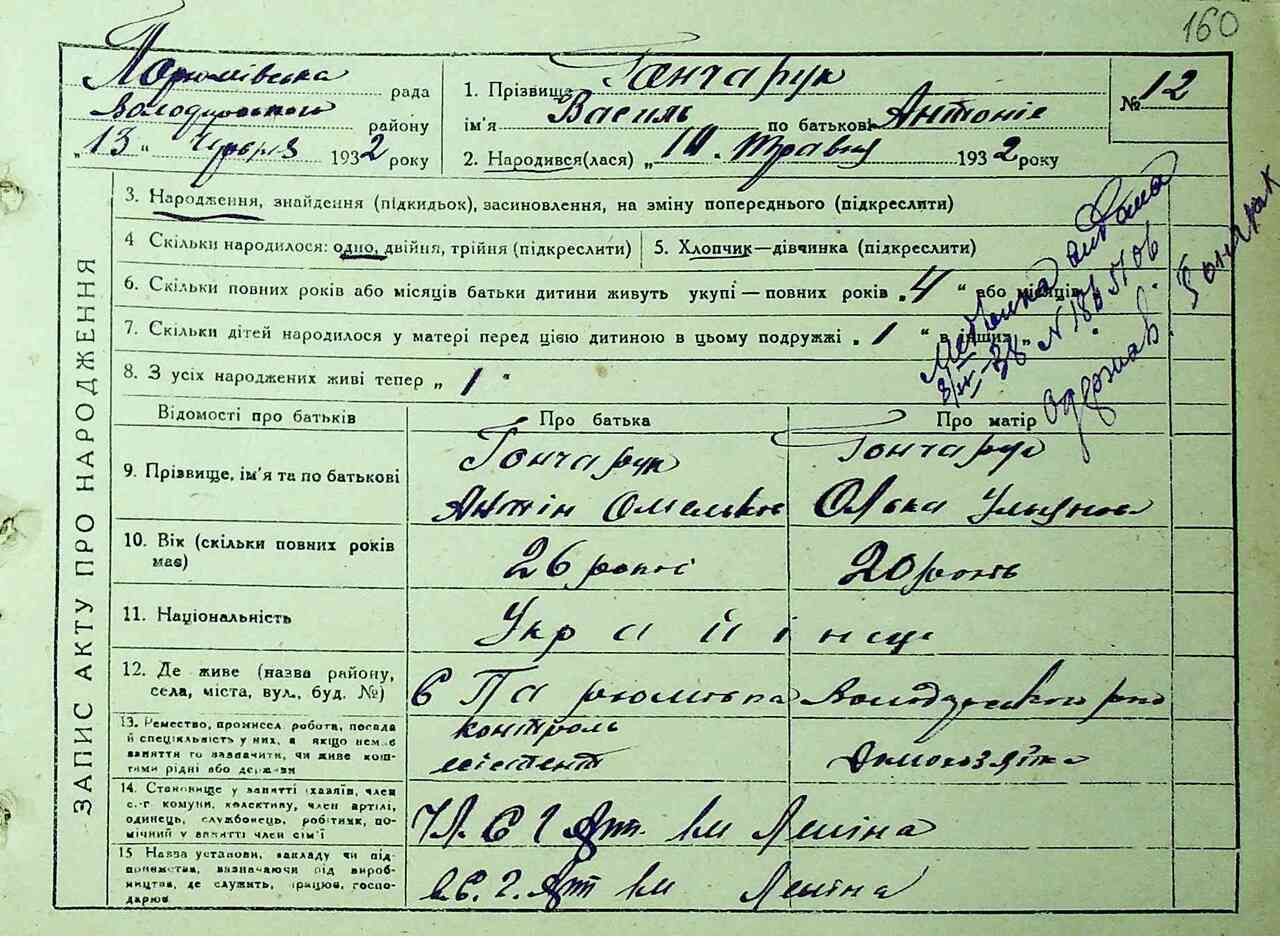 160
рада
району
„13“ 1932 року
1. Прізвище Гончарук
ім'я Василь по батькові Антонів
№ 12
2. Народився(лася) „ Травня 1932 року
ЗАПИС АКТУ ПРО НАРОДЖЕННЯ
3. Народження, знайдення (підкидьок), засиновлення, на зміну попереднього (підкреслити)
4 Скільки народилося: одно, двійня, трійня (підкреслити)
5. Хлопчик—дівчинка (підкреслити)
6. Скільки повних років або місяців батьки дитини живуть укупі — повних років „4“ або місяців
7. Скільки дітей народилося у матері перед цією дитиною в цьому подружжі „1“ в інших „
8. З усіх народжених живі тепер „1“
Відомості про батьків
Про батька
Про матір
9. Прізвище, ім'я та по батькові
Гончарук
Антін
Гончарук
10. Вік (скільки повних років
має)
26
20 років
11. Національність
Українці
12. Де живе (назва району,
села, міста, вул., буд. №)
13. Ремество, промисел, робота, посада
й спеціяльність у них, а якщо немає
заняття то зазначити, чи живе кош-
тами рідні або держави
контроль
Домохозяйка
14. Становище у занятті (хазяїн, член
с.-г комуни, колективу, член артілі,
одинець, службовець, робітник, по-
мічний у занятті член сім'ї
Арт. ім Леніна
15 Назва установи, закладу чи під-
приємства, визначаючи рід вироб-
ництва, де служить, працює, госпо-
дарює
Арт ім Леніна